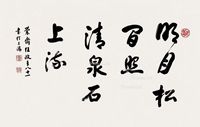 明月松
間照
清泉石
上流